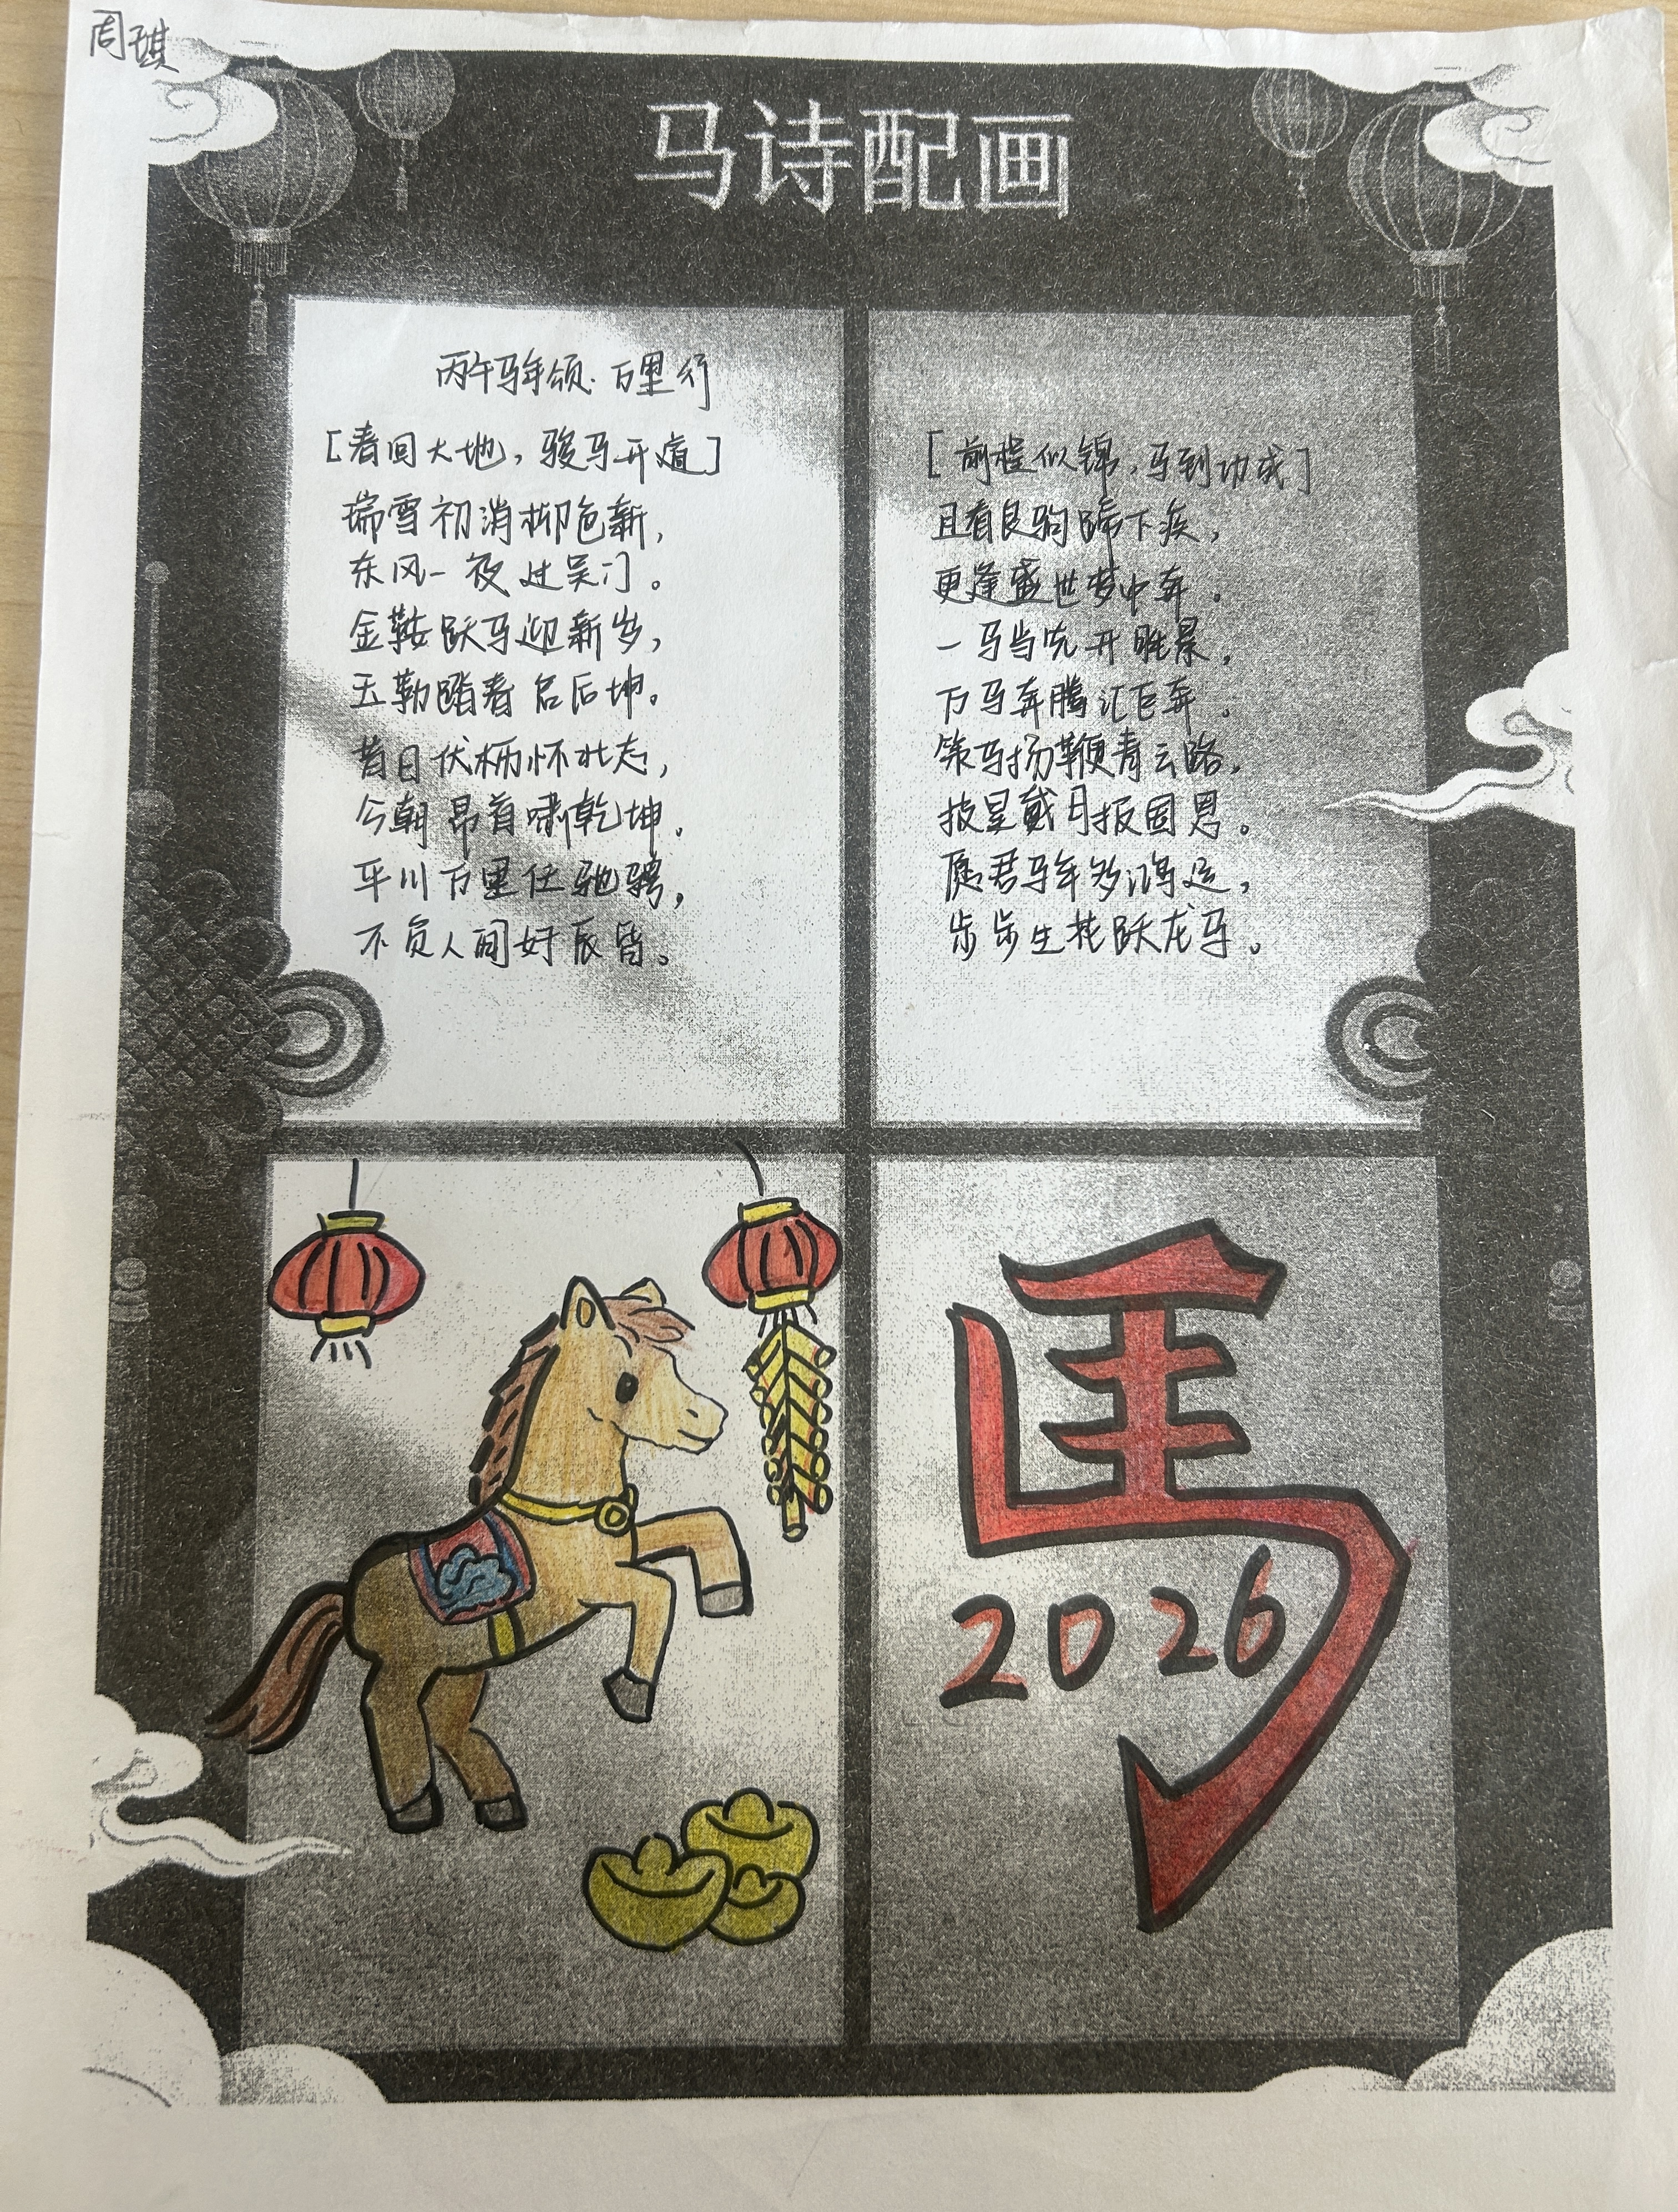 周琪
马诗配画
丙午马年颂·万里行
[春回大地,骏马开道]
瑞雪初消柳色新,
东风一夜过吴门。
金鞍跃马迎新岁,
玉勒踏春启后坤。
昔日伏枥怀壮志,
今朝昂首啸乾坤。
平川万里任驰骋,
不负人间好辰皆。
[前程似锦,马到功成]
且看良驹蹄下疾,
更逢盛世梦中奔。
一马当先开胜景,
万马奔腾汇巨奔。
策马扬鞭青云路,
披星戴月报国恩。
愿君马年多鸿运,
步步生花跃龙马。
馬
2026